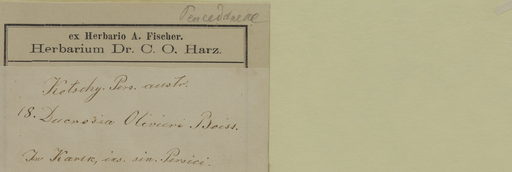 Peucedaneae
ex Herbario A. Fischer.
Herbarium Dr. C. O. Harz.
Kotschy. Pers. austr.
18. Ducrosia Olivieri Boiss.
In Karek, ins. sin. Persici.